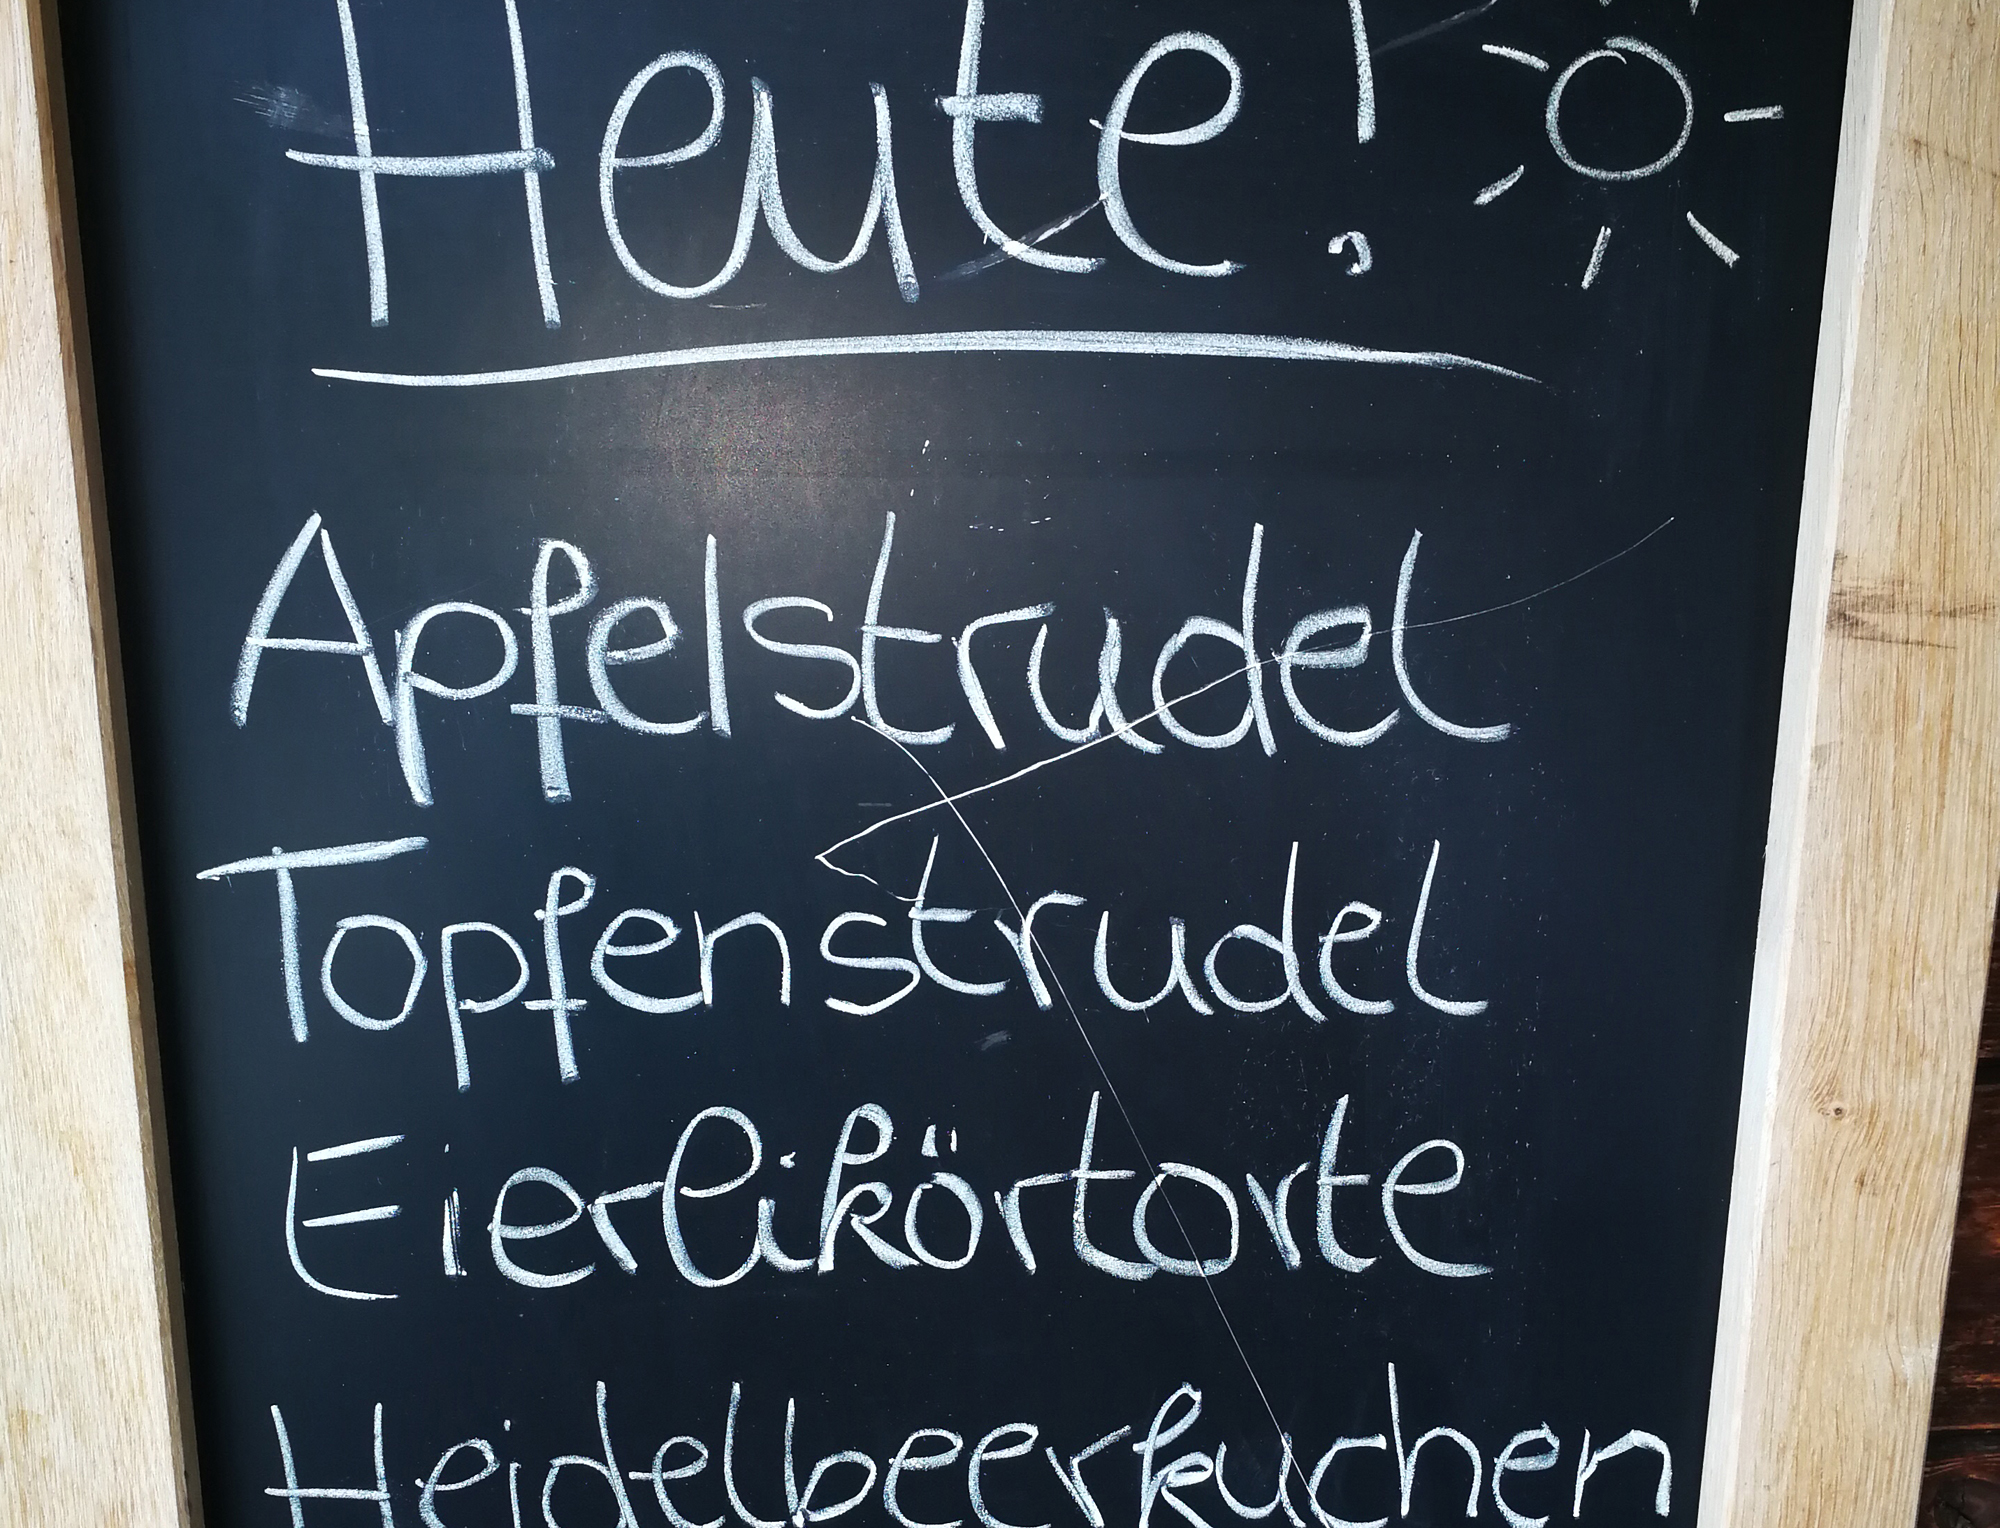 Heute!
Apfelstrudel
Topfenstrudel
Eierlikörtorte
Heidelbeerkuchen